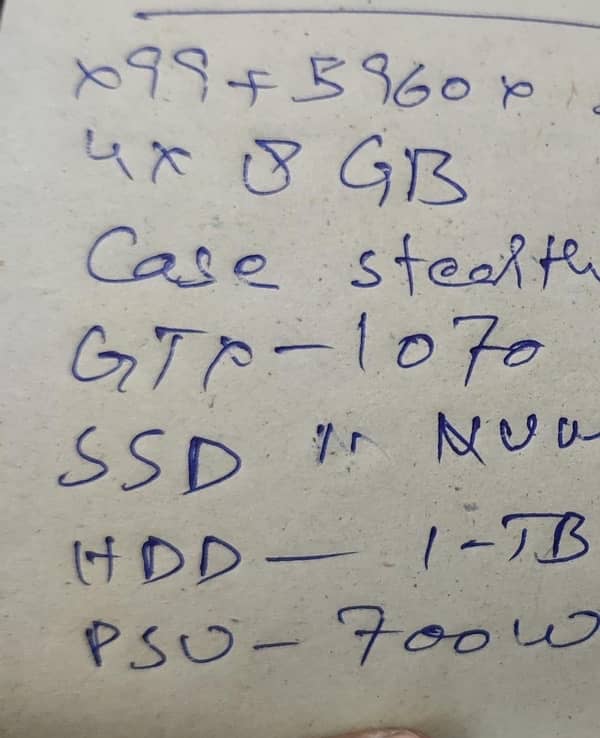 x99 + 5960x
4x 8 GB
Case stealth
GTX-1070
SSD
HDD — 1-TB
PSU - 700W